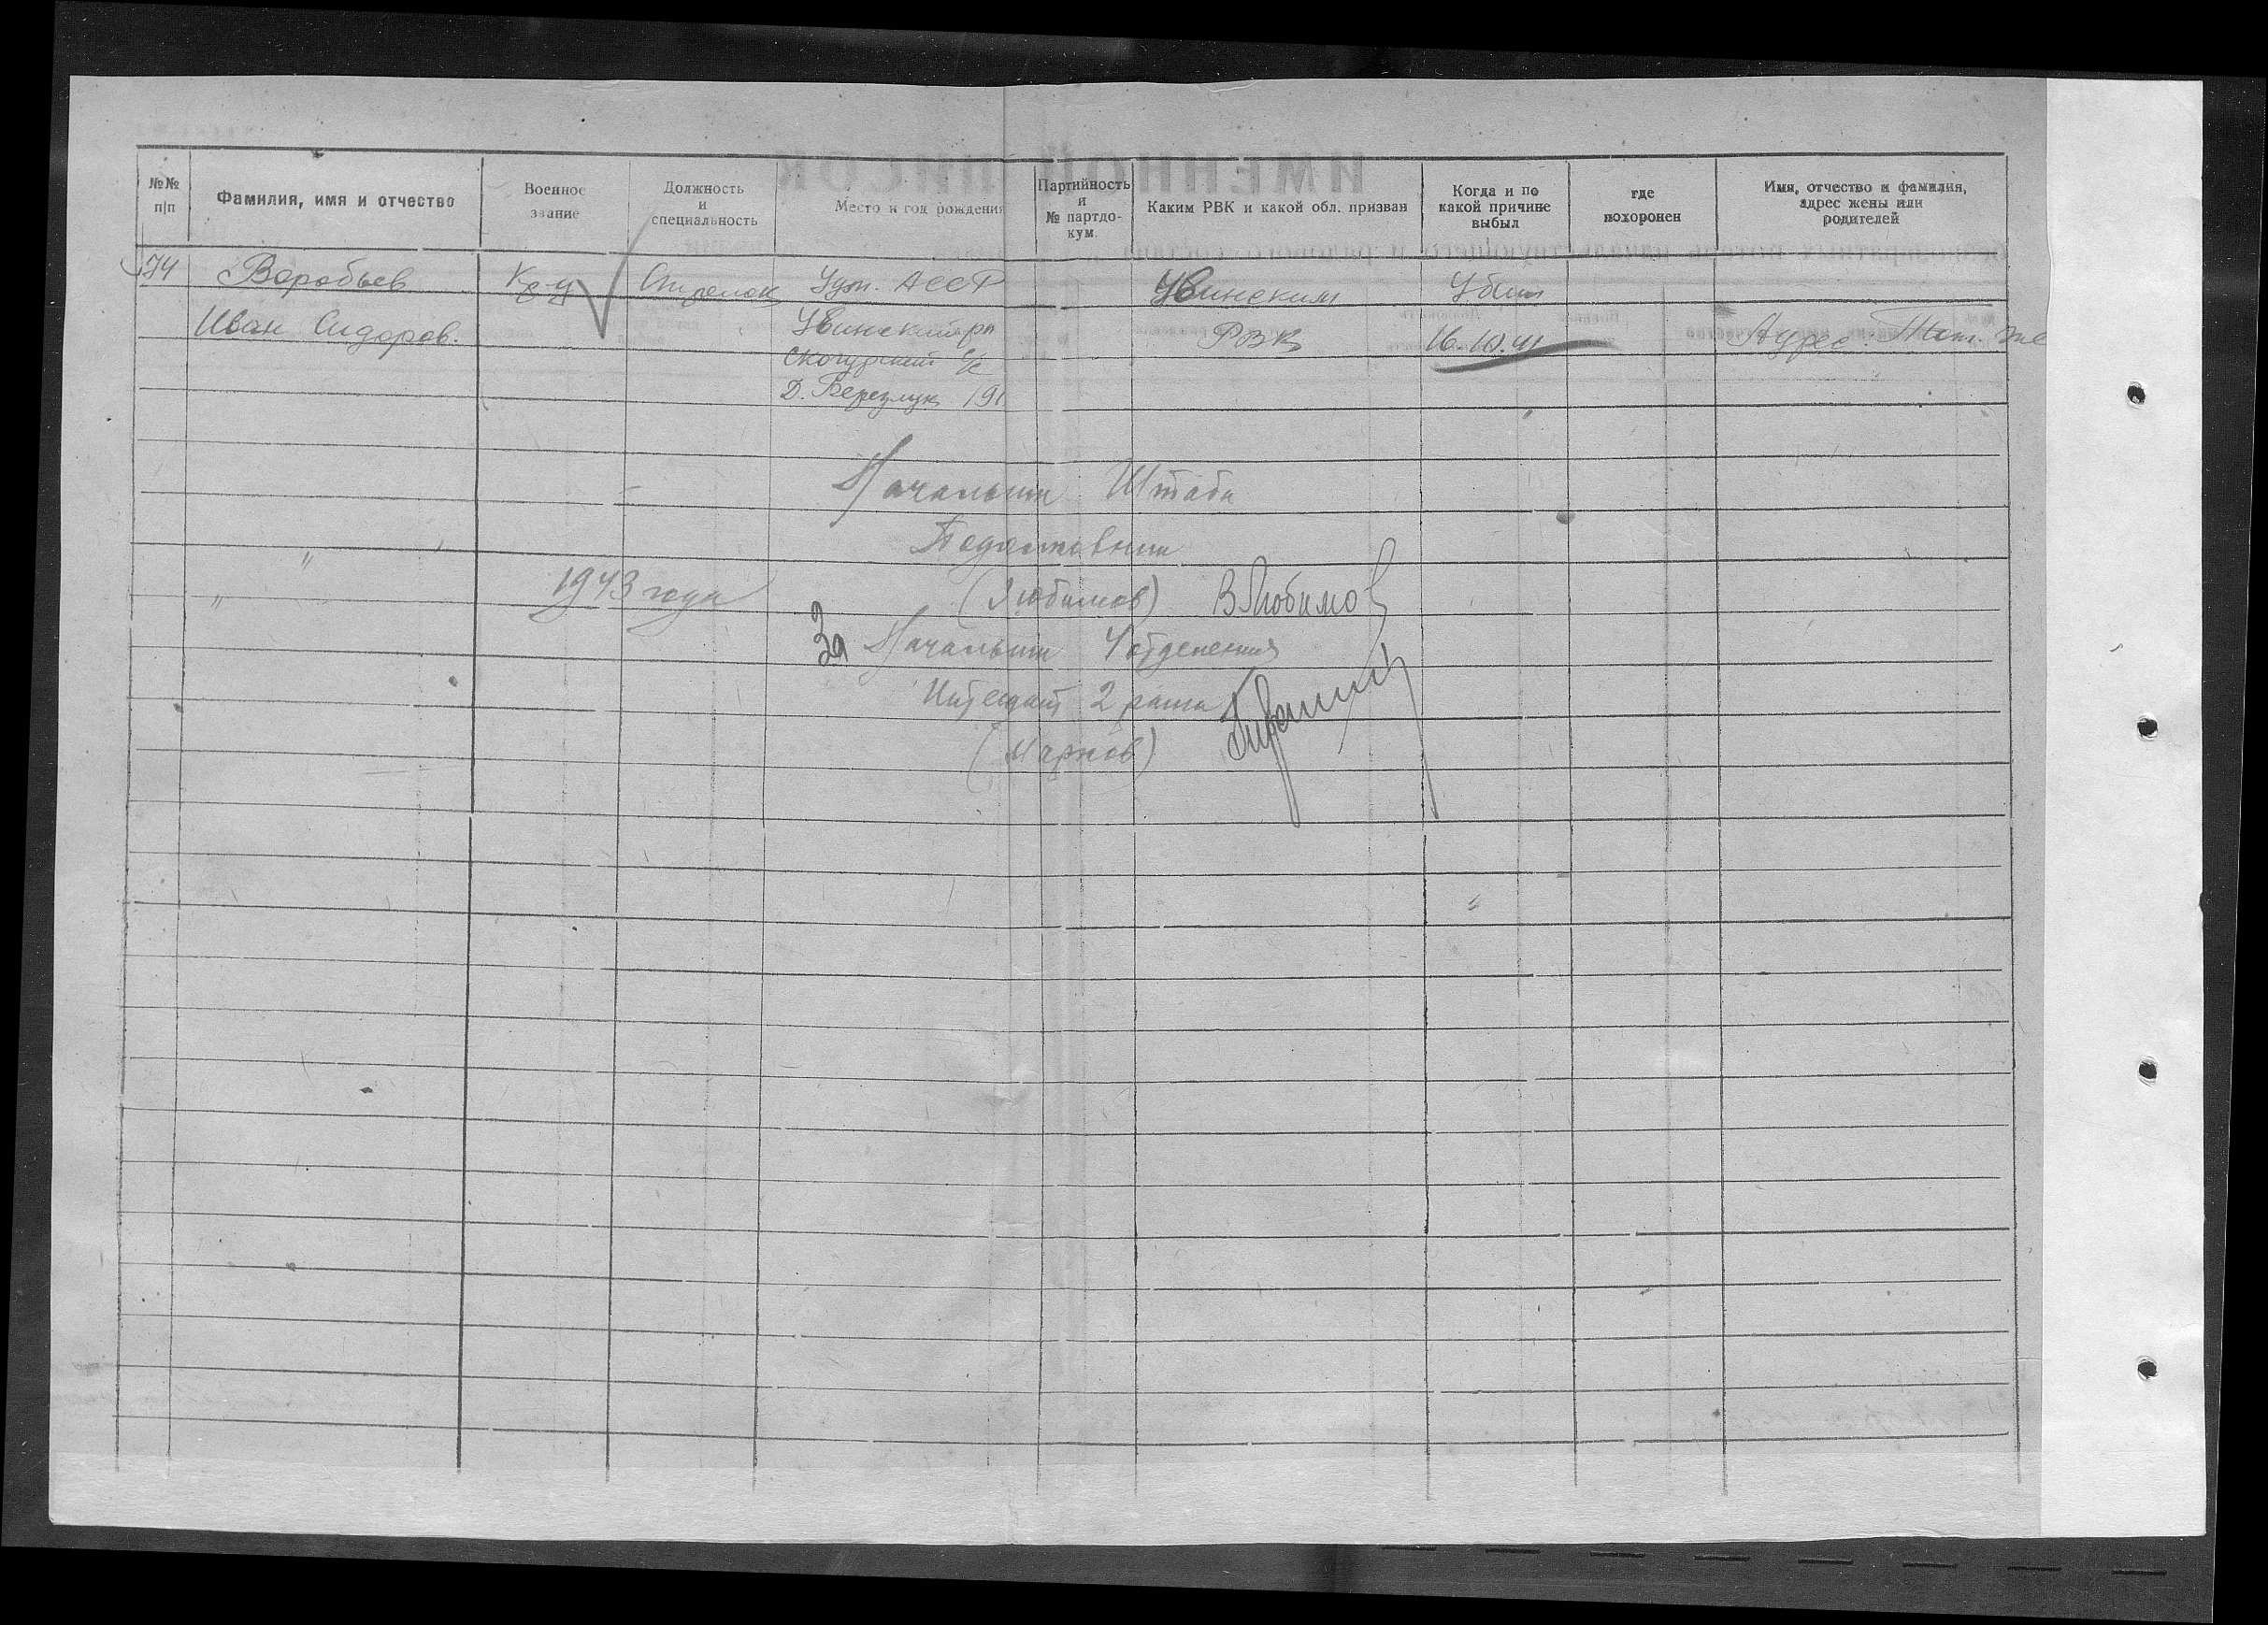 №№ п|п
Фамилия, имя и отчество
Военное звание
Должность и специальность
Место и год рождения
Партийность и № партдокум.
Каким РВК и какой обл. призван
Когда и по какой причине выбыл
где похоронен
Имя, отчество и фамилия, адрес жены или родителей
74 Воробьев Стрелок Удм. АССР Увинским Убит
Иван Сидоров. Увинский рн РВК 16.10.41 Адрес: Там же
с/с
Д. 191
Начальник Штаба
Подполковник
1943 года (Любимов) ВЛюбимов
За Начальник 4 отделения
Интендант 2 ранга
(Марков)